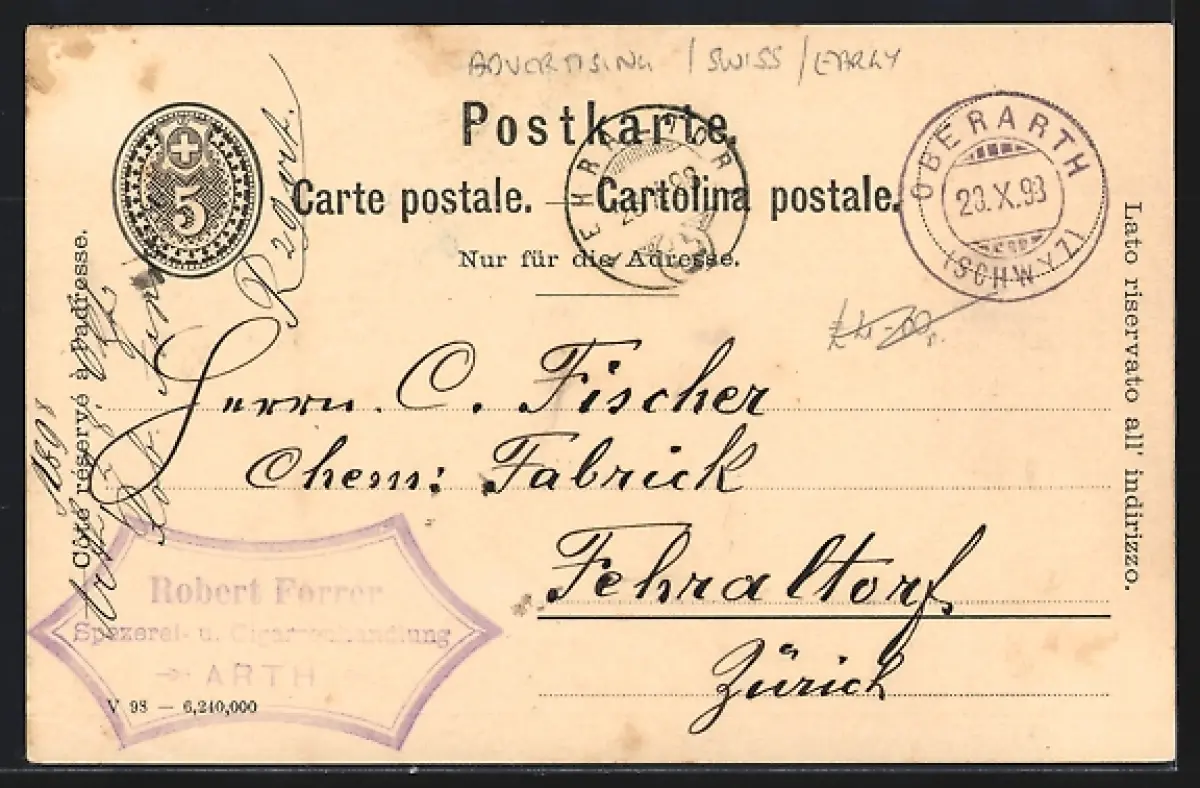 ADVERTISING / SWISS / EARLY
Postkarte.
Carte postale. — Cartolina postale.
Nur für die Adresse.
5
FEHRALTORF
OBERARTH
23.X.93
(SCHWYZ)
Côté réservé à l'adresse.
Lato riservato all' indirizzo.
Herrn. C. Fischer
Chem: Fabrick
Fehraltorf
Zürich
Robert Forrer
Spezerei- u. Cigarrenhandlung
ARTH
V 93 — 6,240,000